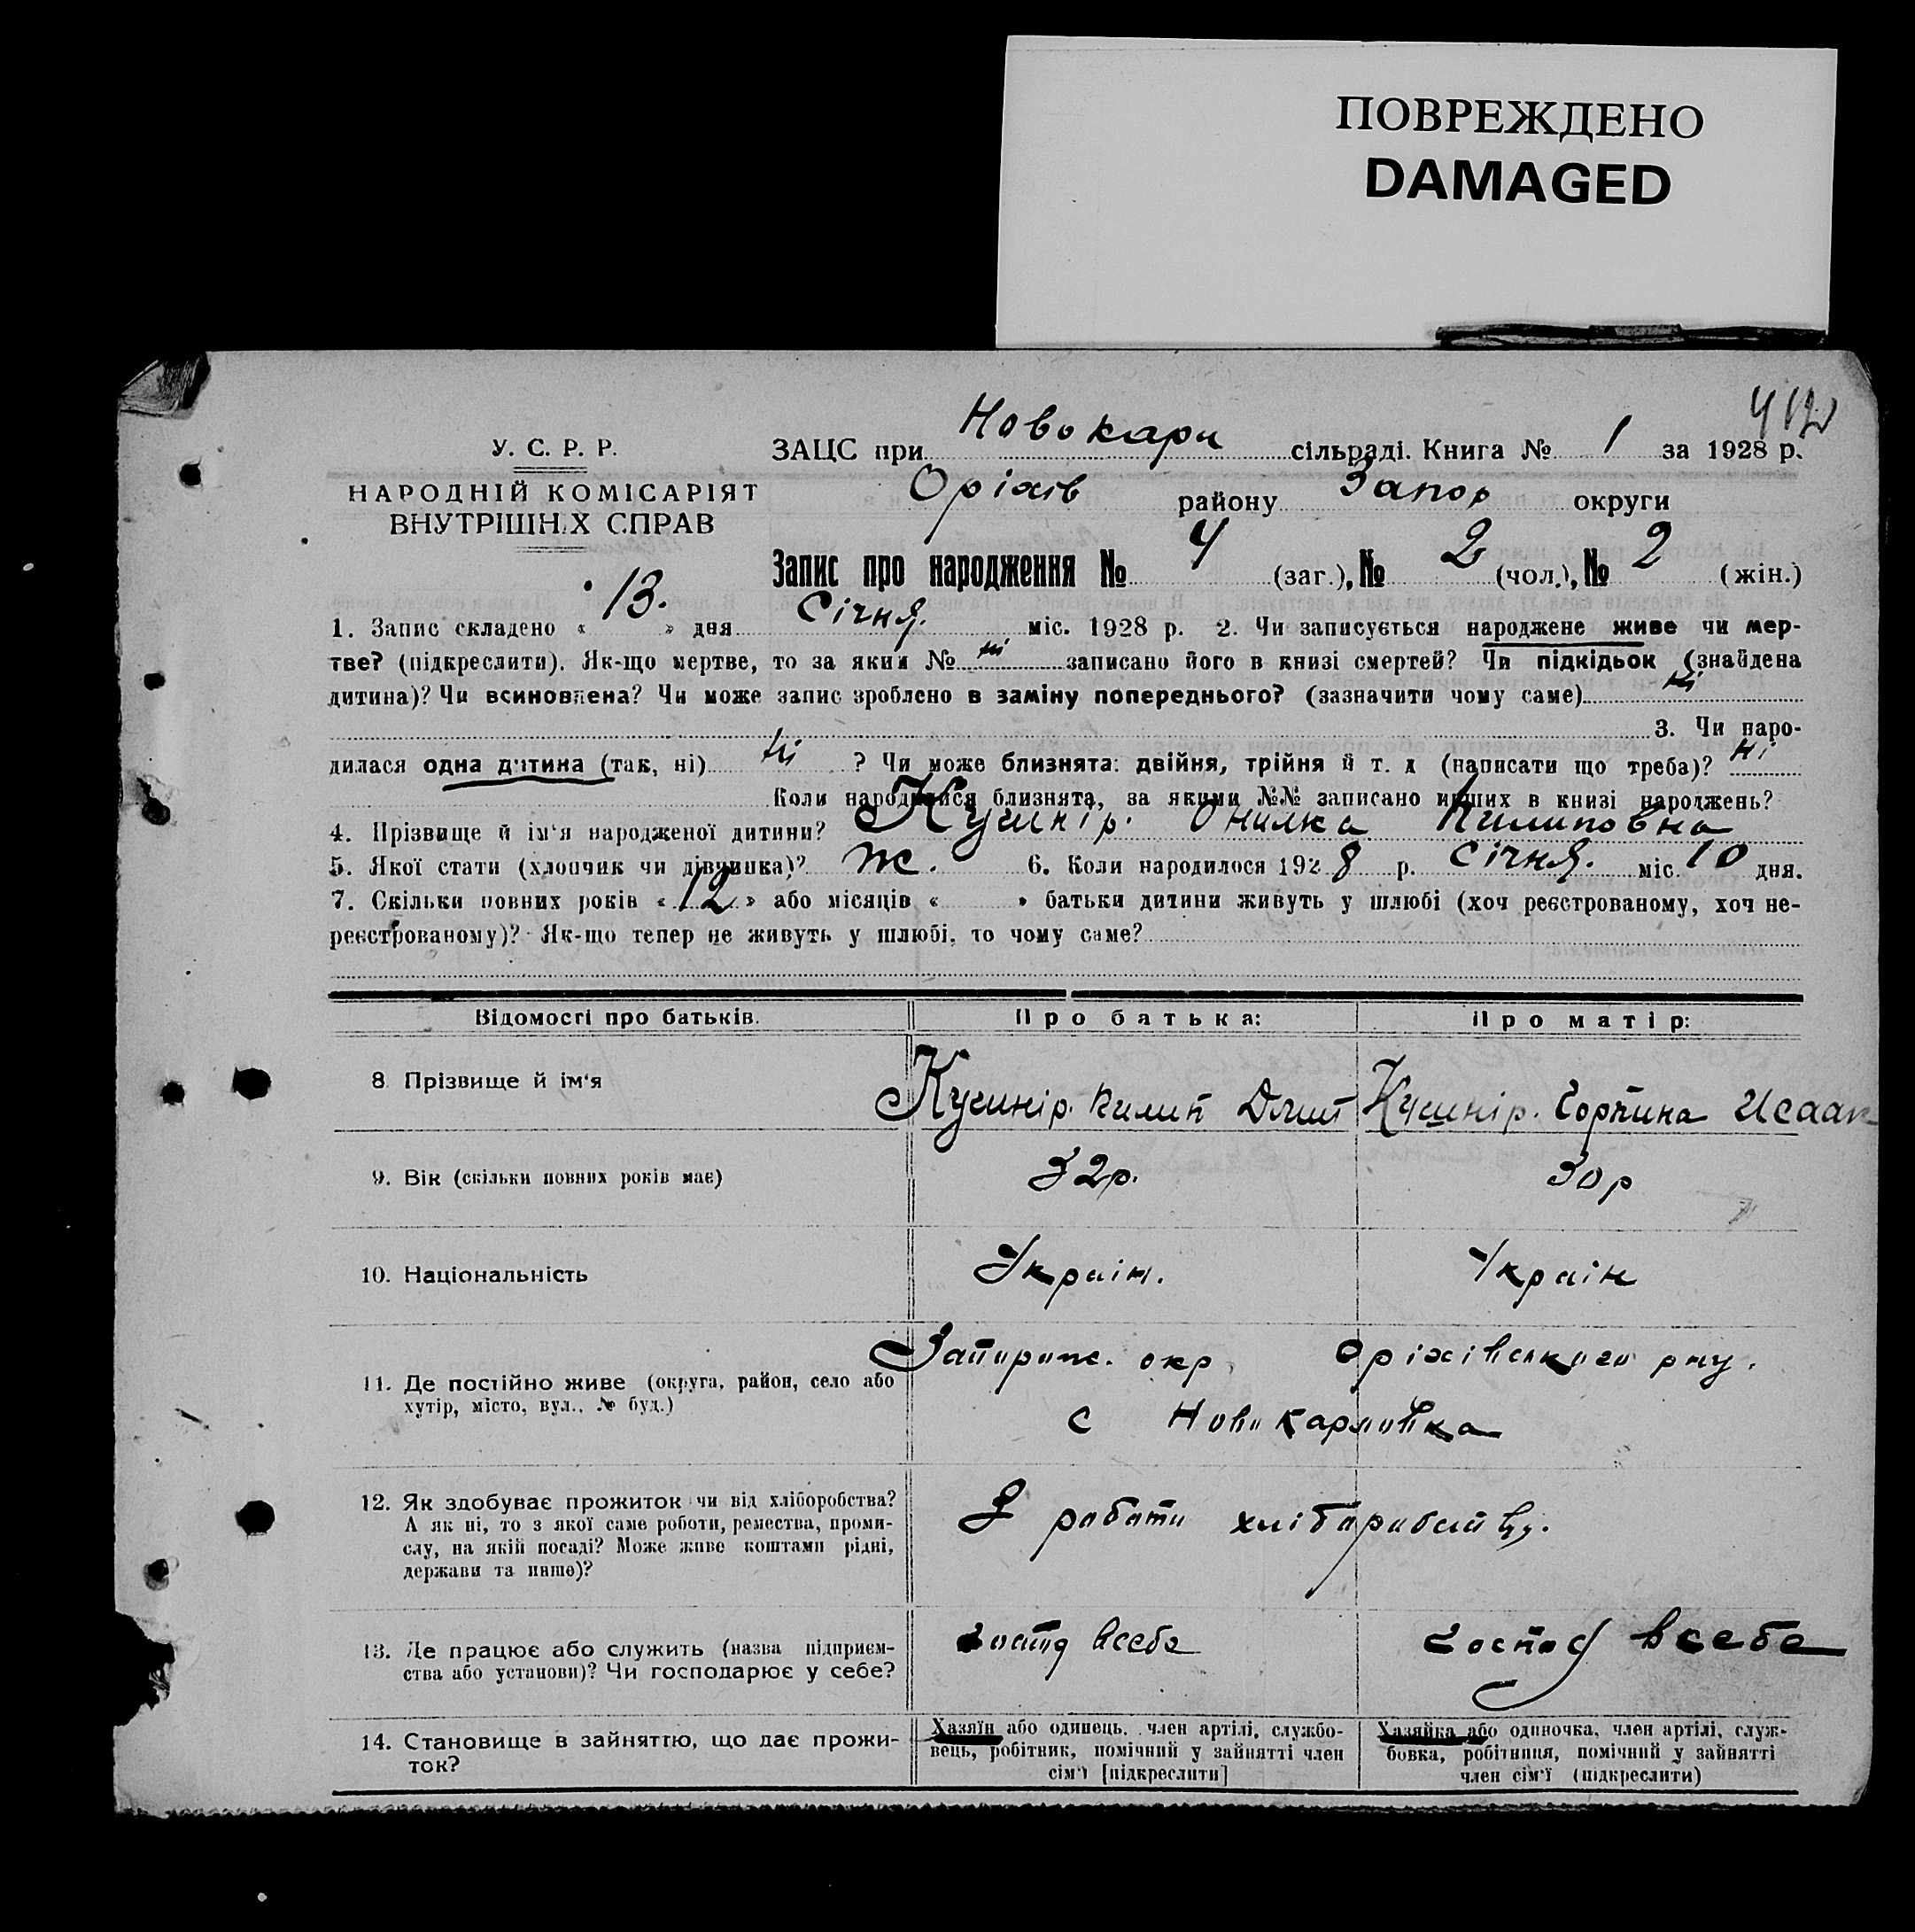 ПОВРЕЖДЕНО
DAMAGED
412
У. С. Р. Р.
НАРОДНІЙ КОМІСАРІЯТ
ВНУТРІШНІХ СПРАВ
ЗАЦС при Новокарл сільраді. Книга № 1 за 1928 р.
Оріхів району Запор округи
Запис про народження № 4 (заг.), № 2 (чол.), № 2 (жін.)
1. Запис складено « 13. » дня Січня. міс. 1928 р. 2. Чи записується народжене живе чи мер-
тве? (підкреслити). Як-що мертве, то за яким № ні записано його в книзі смертей? Чи підкідьок (знайдена
дитина)? Чи всиновлена? Чи може запис зроблено в заміну попереднього? (зазначити чому саме) ні
3. Чи наро-
дилася одна дитина (так, ні) ні ? Чи може близнята: двійня, трійня й т. д (написати що треба)? ні
Коли народилися близнята, за якими №№ записано инших в книзі народжень?
4. Прізвище й ім'я народженої дитини? Кушнір. Килиповна
5. Якої стати (хлопчик чи дівчинка)? ж. 6. Коли народилося 1928 р. Січня. міс. 10 дня.
7. Скільки повних років « 12 » або місяців « » батьки дитини живуть у шлюбі (хоч реєстрованому, хоч не-
реєстрованому)? Як-що тепер не живуть у шлюбі, то чому саме?
Відомості про батьків. Про батька: Про матір:
8. Прізвище й ім'я Кушнір. Килип Кушнір. Горпина Исаак
9. Вік (скільки повних років має) 32р. 30р
10. Національність Україн. Україн
Запориж. окр. Оріхівського рну.
11. Де постійно живе (округа, район, село або
хутір, місто, вул., № буд.)
с Новокарловка
12. Як здобуває прожиток чи від хліборобства?
А як ні, то з якої саме роботи, ремества, проми-
слу, на якій посаді? Може живе коштами рідні,
держави та инше)?
З работи хліборобства.
13. Де працює або служить (назва підприєм-
ства або установи)? Чи господарює у себе?
господ всебе господ всебе
14. Становище в зайняттю, що дає прожи-
ток?
Хазяїн або одинець, член артілі, службо-
вець, робітник, помічний у зайнятті член
сім'ї [підкреслити]
Хазяйка або одиночка, член артілі, служ-
бовка, робітниця, помічний у зайнятті
член сім'ї (підкреслити)